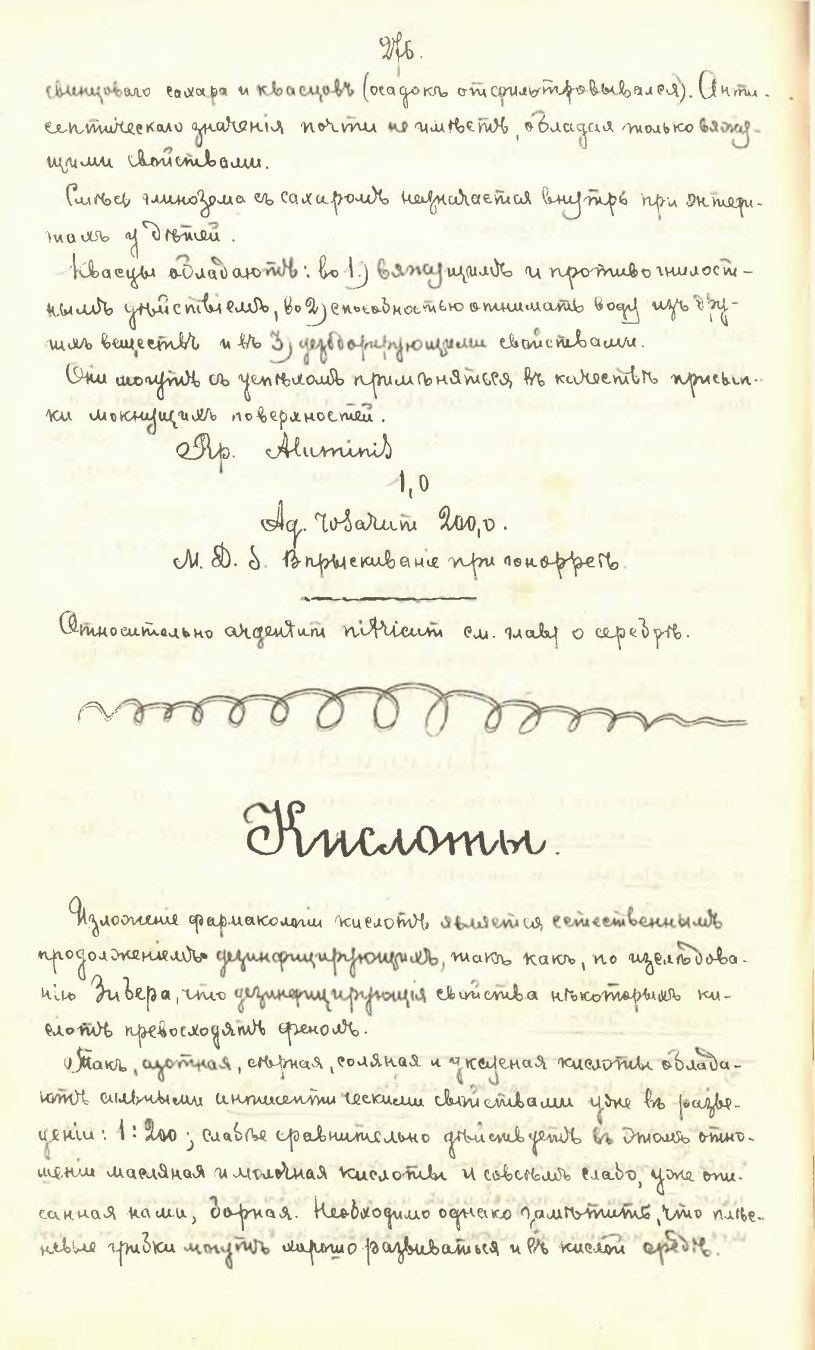 276.
свинцоваго сахара и квасцовъ (осадокъ отфильтровывался). Анти-
септическаго значенія почти не имѣетъ, обладая только вяжу-
щими свойствами.
Смѣсь глинозема съ сахаромъ назначается внутрь при энтери-
тахъ у дѣтей.
Квасцы обладаютъ: во 1.) вяжущимъ и противогнилост-
нымъ дѣйствіемъ, во 2) способностью отнимать воду изъ дру-
гихъ веществъ и въ 3) дезодорирующими свойствами.
Они могутъ съ успѣхомъ примѣняться, въ качествѣ присып-
ки мокнущихъ поверхностей.
Rp. Aluminis
1,0
Aq. rosarum 200,0.
M. D. S. Впрыскиваніе при гоноррѣѣ
Относительно argentum nitricum см. главу о серебрѣ.
Кислоты.
Изложеніе фармакологіи кислотъ является естественнымъ
продолженіемъ дезинфицирующихъ, такъ какъ, по изслѣдова-
нію Зибера, что дезинфицирующія свойства нѣкоторыхъ ки-
слотъ превосходятъ фенолъ.
Такъ, азотная, сѣрная, соляная и уксусная кислоты облада-
ютъ сильными антисептическими свойствами уже въ разве-
деніи: 1:200; слабѣе сравнительно дѣйствуетъ въ этомъ отно-
шеніи масляная и молочная кислоты и совсѣмъ слабо, уже опи-
санная нами, борная. Необходимо однако замѣтить, что плѣс-
невые грибки могутъ хорошо развиваться и въ кислой средѣ.